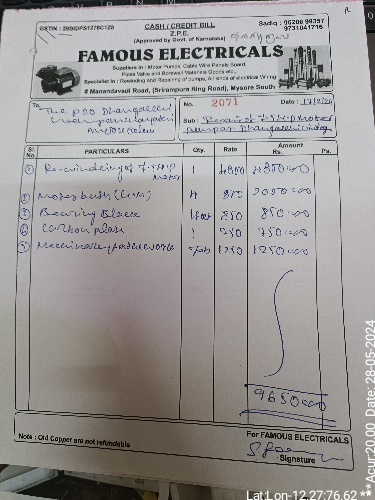 GSTIN : 29BIDPS1276C1Z8
CASH / CREDIT BILL
Sadiq : 96206 98357
9731041716
Z.P.E.
(Approved by Govt. of Karnataka)
FAMOUS ELECTRICALS
Suppliers in : Motor Pumps, Cable Wire Panels Board,
Pipes Valve and Borewell Materials Goods etc.,
Specialist in : Rewinding and Repairing of pumps, All kinds of electrical Wiring
# Manandavadi Road, (Srirampura Ring Road), Mysore South
To, The PDO
No. 2071
Date :
Sub : Repair of 7.5 H.P Motor
Sl. No. PARTICULARS Qty. Rate Amount Rs. Ps.
1 Re-winding of 7.5 H.P Motor 1 4800 4800=00
2 Motor bush (G.M) 4
3 Bearing Black 1 850 850=00
4 Carbon plate 1 750 750=00
5 1250 1250=00
9650=00
Note : Old Copper are not refundable
For FAMOUS ELECTRICALS
Signature
Lat:Lon-12.27:76.62 ***Acur:20.00 Date: 28-05-2024